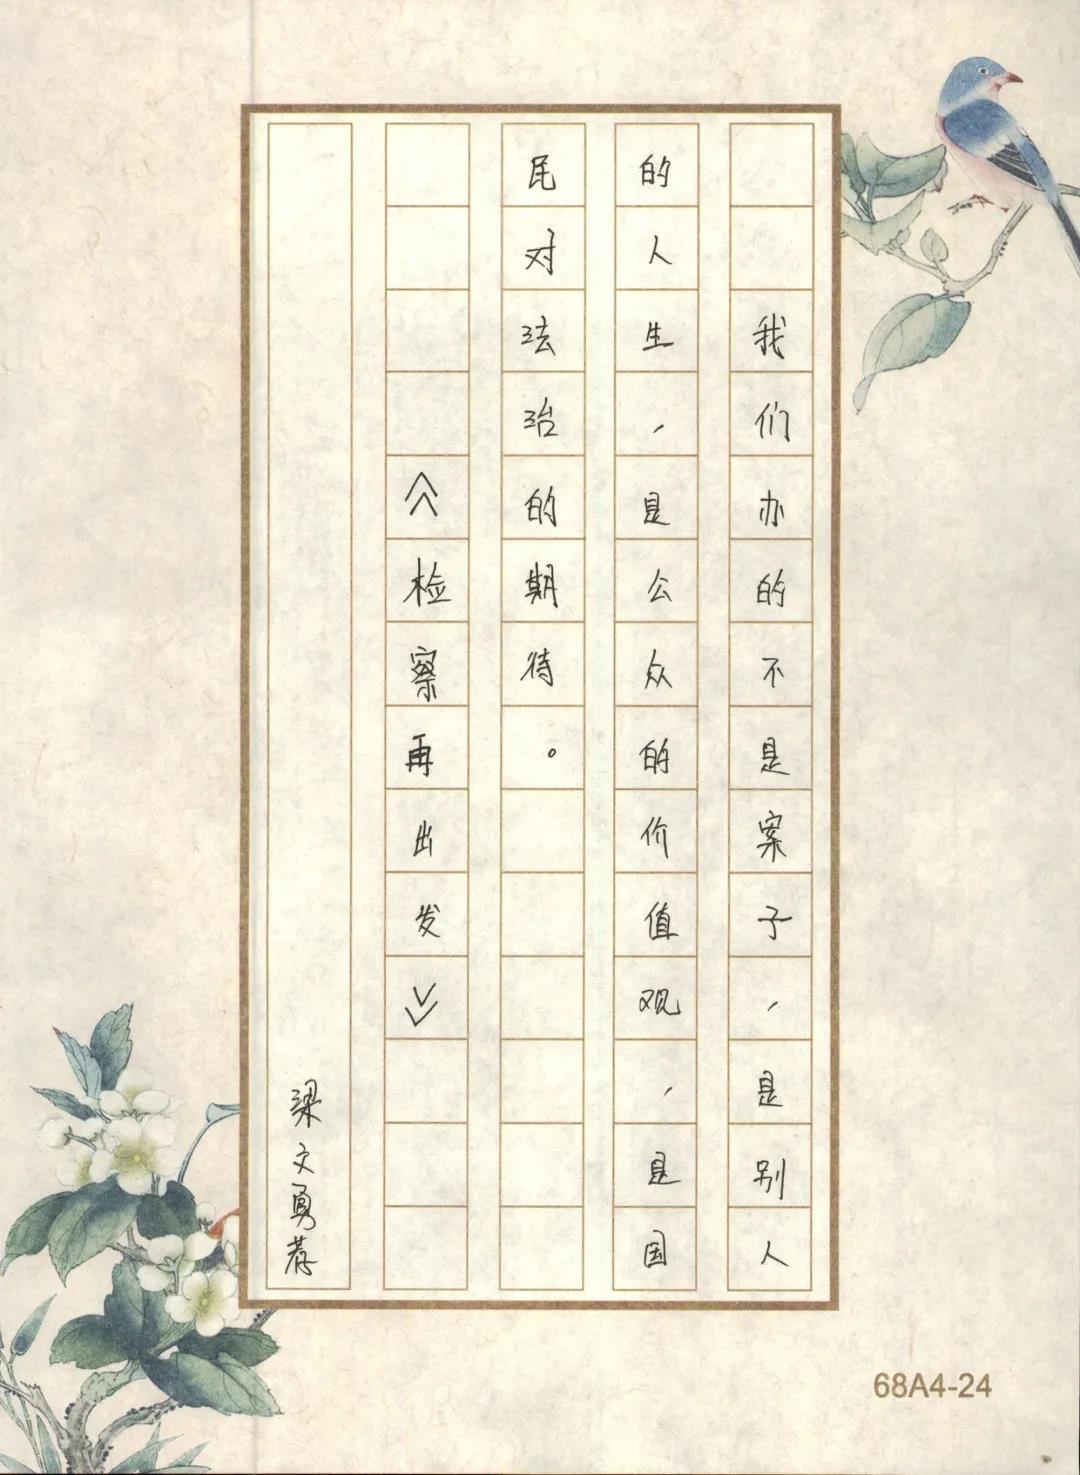 我们办的不是案子，是别人
的人生，是公众的价值观，是国
民对法治的期待。
《检察再出发》
梁文勇荐
68A4-24